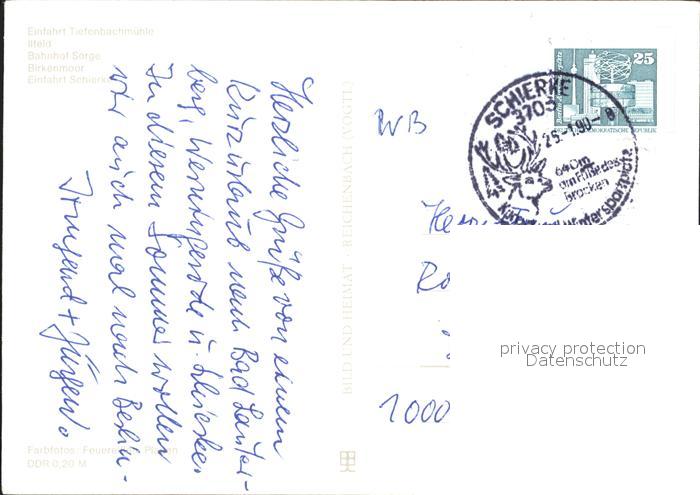 Einfahrt Tiefenbachmühle
Ilfeld
Bahnhof Sorge
Birkenmoor
Einfahrt Schierke
Herzliche Grüße von einem
Kurzurlaub nach Bad Lauter-
berg, Wernigerode u. Schierke.
In diesem Sommer wollen
wir auch mal nach Berlin.
Irmgard + Jürgen.
Farbfotos: Feuerei
DDR 0,20 M
BILD UND HEIMAT · REICHENBACH (VOGTL)
25
DEUTSCHE DEMOKRATISCHE REPUBLIK
SCHIERKE
3705
25.-1.90-
640m
am Fuße des
Brocken
Wintersportplatz
WB
Ro
1000
privacy protection
Datenschutz